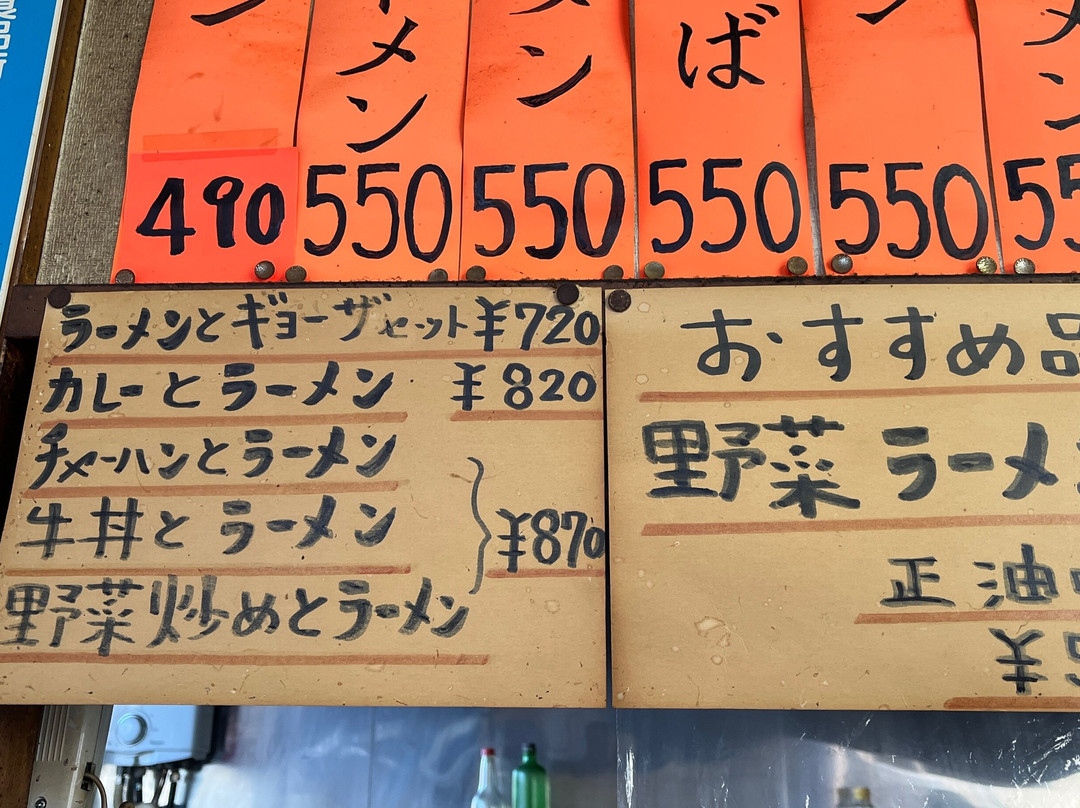 ン
メン
ン
ば
ン
490
550
550
550
550
ラーメンとギョーザセット ¥720
カレーとラーメン ¥820
チャーハンとラーメン
牛丼とラーメン
¥870
野菜炒めとラーメン
おすすめ品
野菜ラーメ
正油